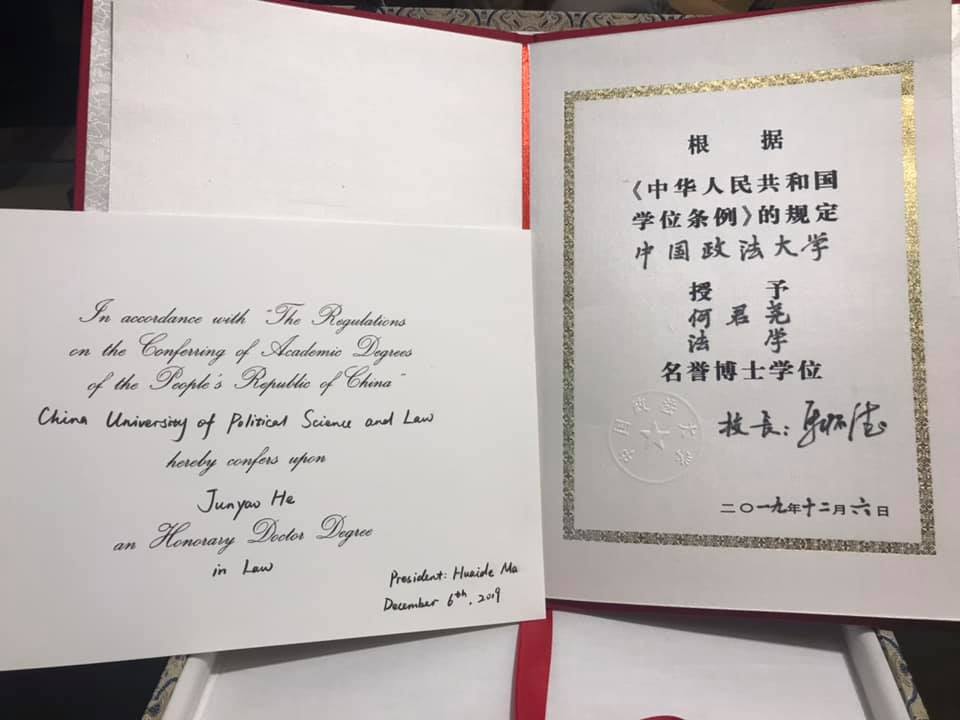 In accordance with "The Regulations
on the Conferring of Academic Degrees
of the People's Republic of China"
China University of Political Science and Law
hereby confers upon
Junyao He
an Honorary Doctor Degree
in Law
President: Huaide Ma
December 6th, 2019
根 据
《中华人民共和国
学位条例》的规定
中国政法大学
授 予
何君尧
法 学
名誉博士学位
校长：马怀德
二〇一九年十二月六日